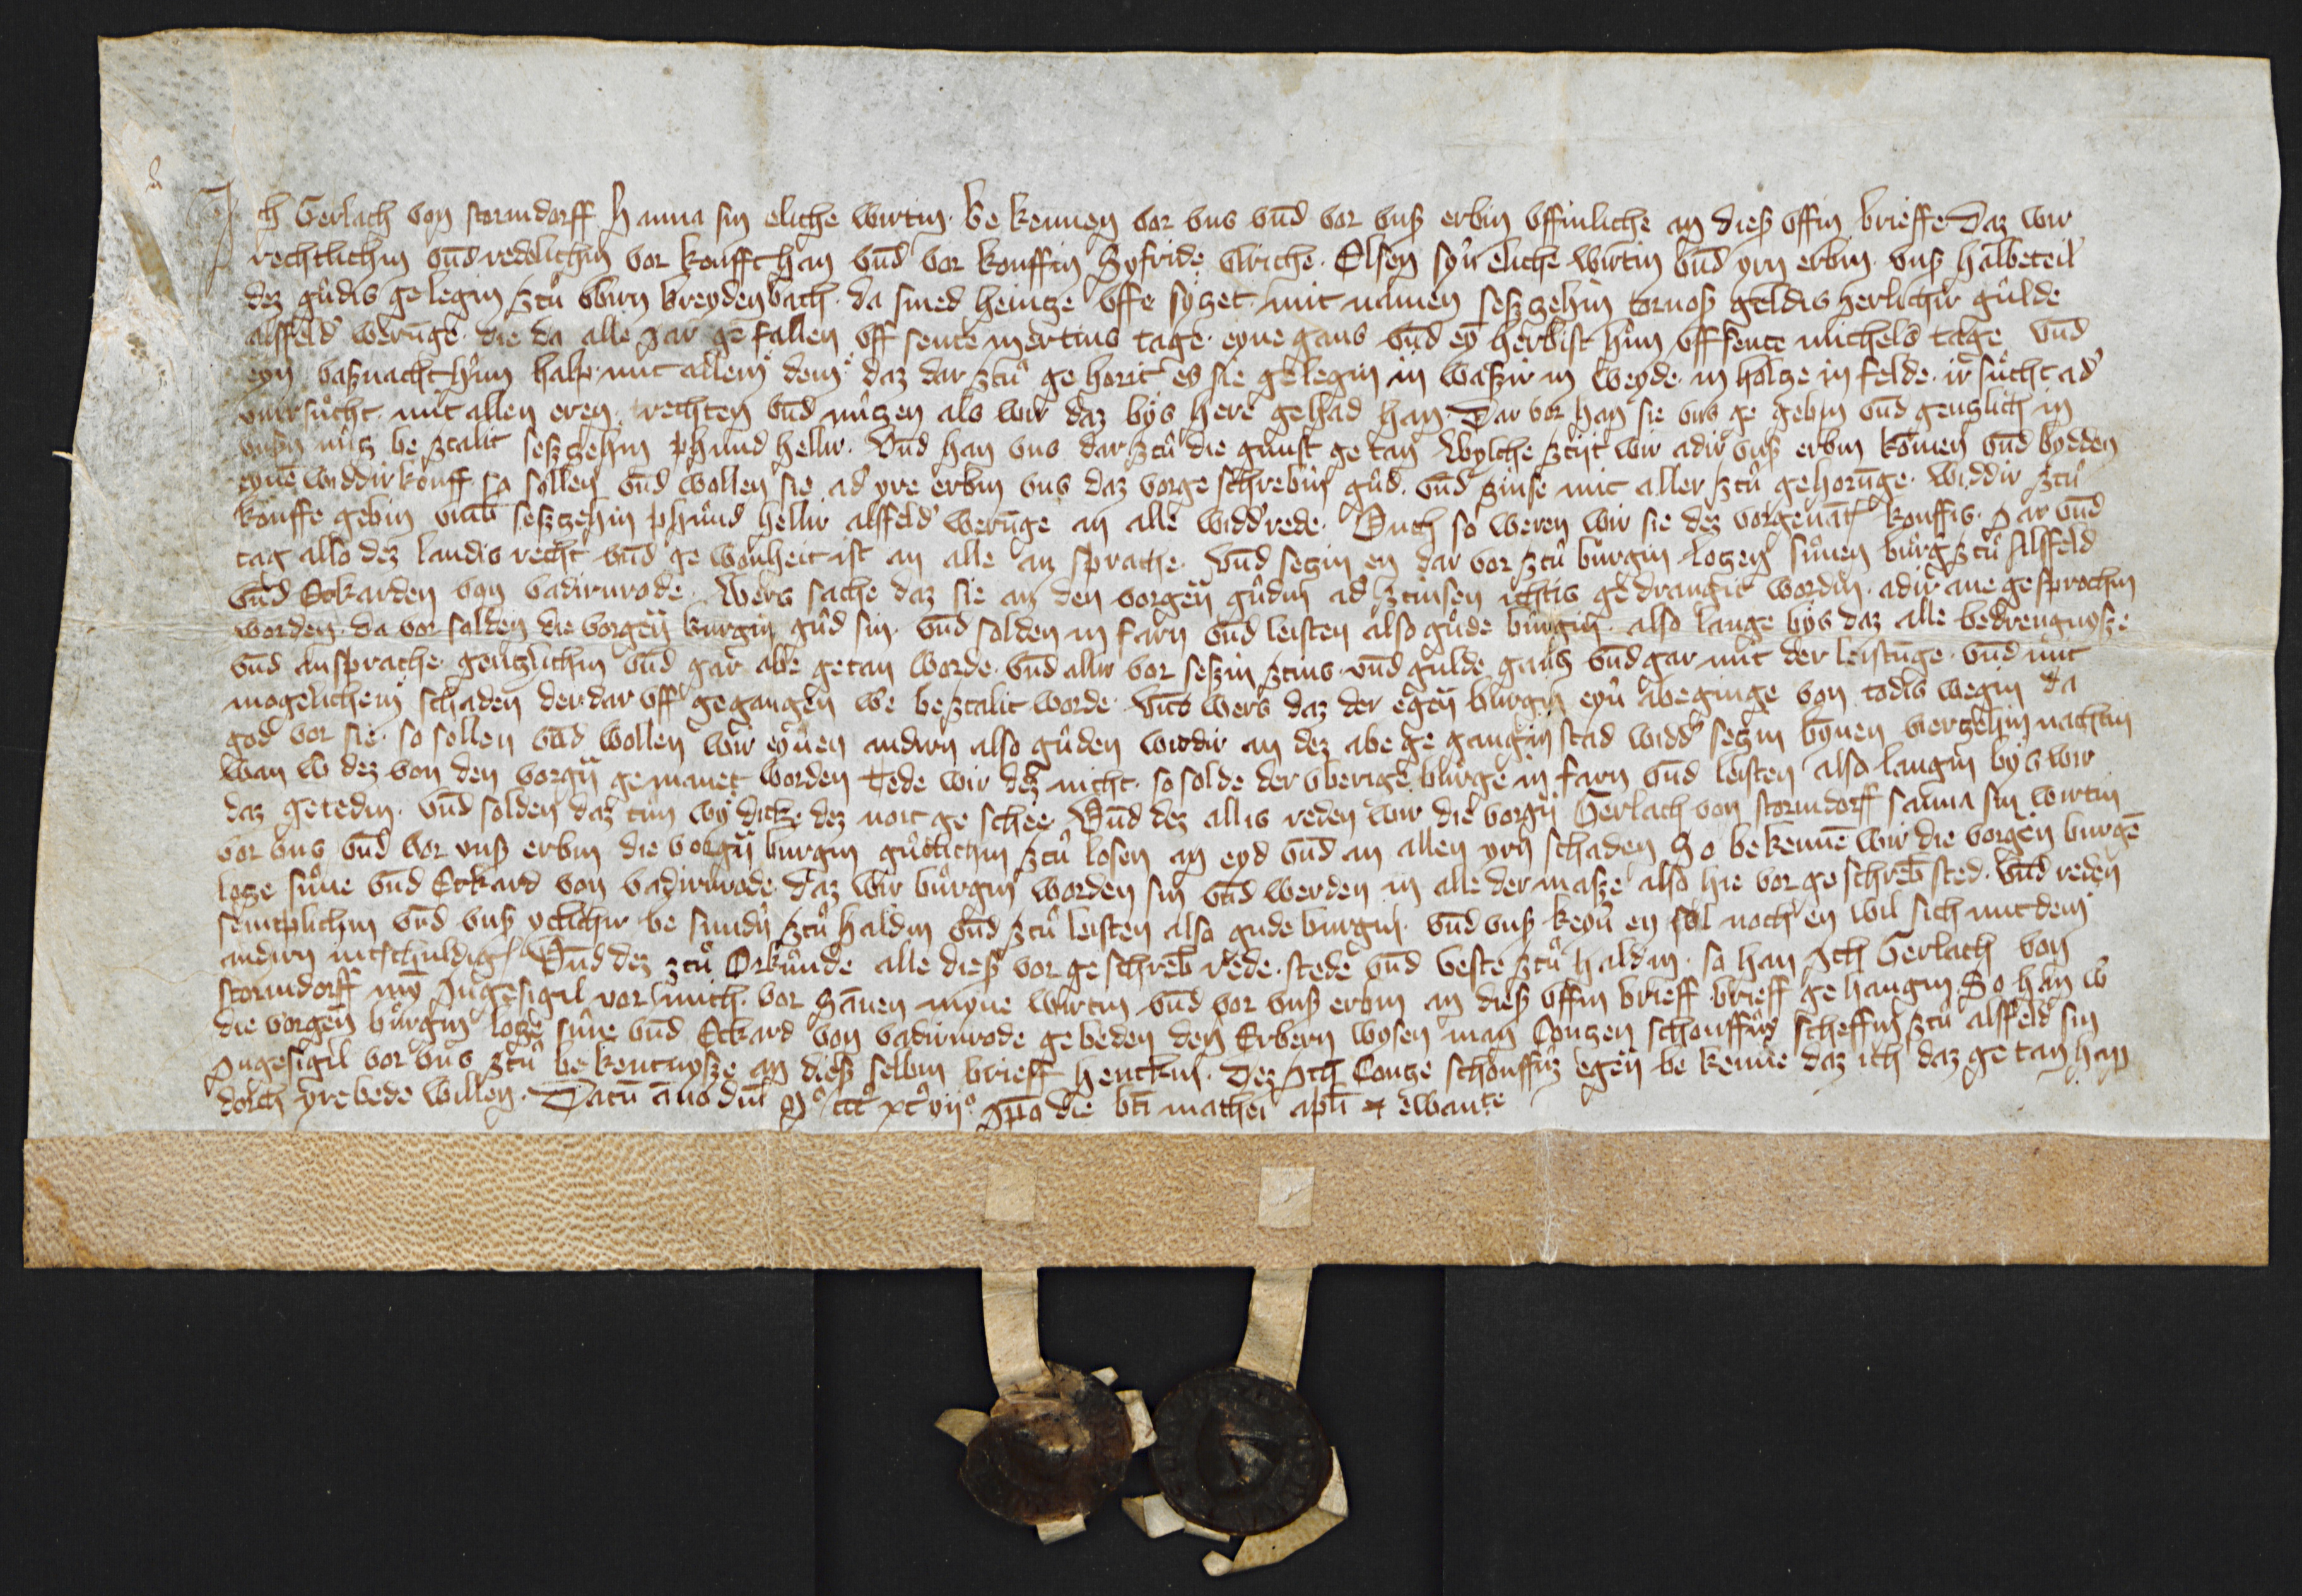 Ich Gerlach von stormdorff Hanna sin eliche wirtin be kennen vor vns vnd vor vnß erbin vffinliche an dieß vffin brieffe Daz wir
rechtlichin vnd redelichin vor koufft han vnd vor kouffin Syfride vlriche Elsen syn eliche wirtin vnd yrn erbin vnß halbeteil
dez gudis gelegin ztu vbirn breydenbach da smed heintze vffe sytzet mit namen seßzehin tornoß geldis herlichir gulde
alsfeld werunge die da alle Jar ge fallen vff sente mertins tage eyne gans vnd ey herbist hun vff sente michels tage vnd
eyn vaßnacht hun halp mit allem dem daz dar ztu ge horit es sie gelegin in waßir in weyde in holtze in felde ir sucht ad
vnir sucht mit allen eren rechten vnd nutzen als wir daz bys here gehad han Dar vor han sie vns ge gebin vnd gentzlich in
vnßn nutz be ztalit seßzehin phund hellir Vnd han vns dar ztu die gunst ge tan Wylche ztijt wir adir vnß erbin komen vnd byeden
eyne widdir kouff so sollen vnd wollen sie ad yre erbin vns daz vorge schrebin gud vnd zinse mit aller ztu gehorunge widdir ztu
kouffe gebin vmb seßzehin phund hellir alsfeld werunge an alle widdrede Ouch so weren wir sie dez vorgenant kouffis Jar vnd
tag also dez landis recht vnd ge wonheit ist an alle an sprache Vnd setzin en dar vor ztu burgin lotzen sunen burg ztu Alsfeld
vnd Eckarden von vadinrode Wers sache daz sie an den vorgen gudin ad ztinsen ichtis gedrangit wordin adir ane gesprochin
worden da vor solden die vorgen burgin gud sin vnd solden in farn vnd leisten also gude burgin also lange bys daz alle bedrengnysze
vnd Ansprache gentzlichin vnd gar abe getan worde vnd allir vor seßin ztins vnd gulde gantz vnd gar mit der leistunge vnd mit
mogelichem schaden der dar vff gegangen we beztalit worde Vnd wers daz der egen burgin eyn abeginge von todis wegin da
god vor sie so sollen vnd wollen wir eynen andirn also guden widdir an dez abe ge gangin stad widd setzin bynen viertzehin nachtin
wan w dez von den vorgn gemanet worden tede wir dez nicht so solde der vberige burge in farn vnd leisten also langin bys wir
daz getedin vnd solden daz tun wy dicke dez noit ge schee Vnd dez allis reden wir die vorgn Gerlach von stormdorff hanna sin wirtin
vor vns vnd vor vnß erbin die vorgn burgin gutlichin ztu losen an eyd vnd an allen yrn schaden So be kenne wir die vorgen burge
lotze sune vnd Eckard von vadirnrode daz wir burgin worden sin vnd werden in alle der maße also hie vor ge schreb sted Vnd reden
semtplichin vnd vnß yclichir be sundn ztu haldin vnd ztu leisten also gude burgin vnd vnß keyn en sol noch en wil sich mit dem
andirn intschuldig Vnd dez ztu Orkunde alle dieß vor ge schreb rede stede vnd veste ztu haldin so han Ich Gerlach von
stormdorff my Ingesigil vor mich vor Hanen myne wirtin vnd vor vnß erbin an dieß vffin brieff brieff ge hangin So han w
die vorgen burgin lotze sune vnd Eckard von vadirnrode ge beden den Erbern wysen man Contzen schouffuß scheffin ztu alsfeld sin
Ingesigil vor vns ztu be kentnysze an dieß selbin brieff henckin Dez Ich Contze schouffuß egen be kenne daz ich daz ge tan han
dorch yre bede willen Datu ano dni Mo ccco xco vijo Ipa die bti mathei apli & ewante